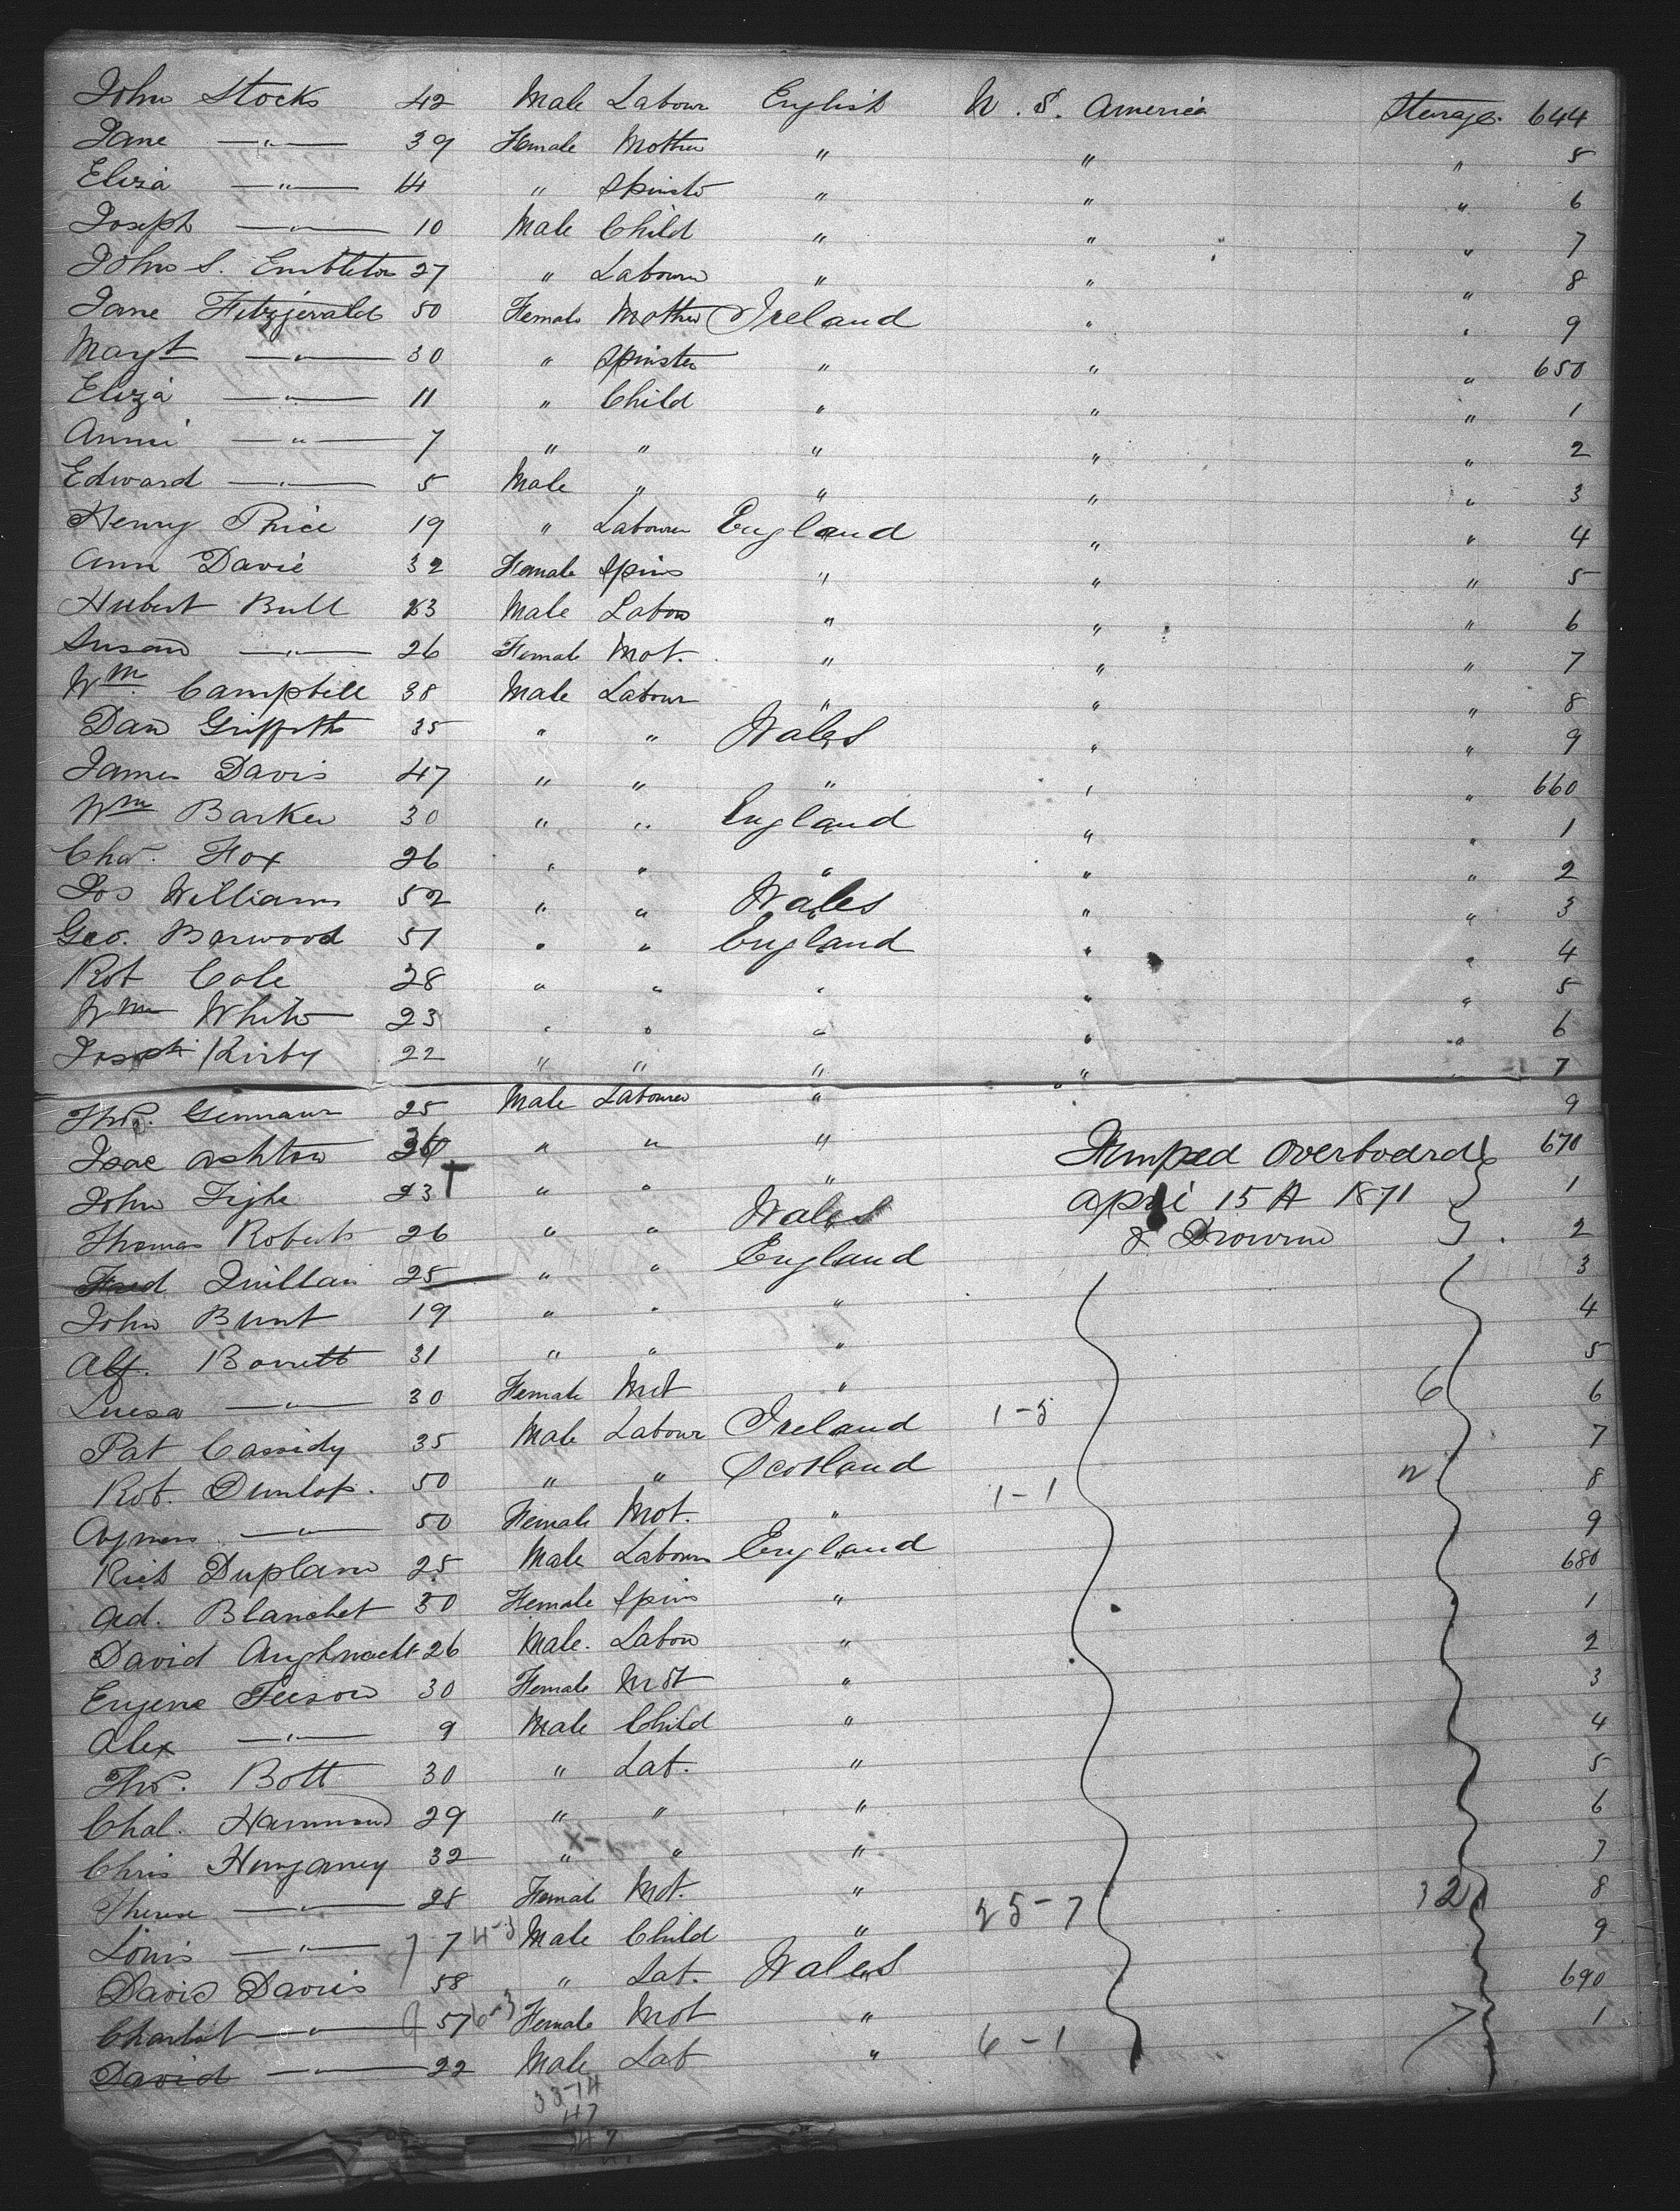 John Stocks 42 Male Labour English U. S. America Sterage 644
Jane —"— 39 Female Mother " " " 5
Eliza —"— 14 " Spinst " " " 6
Joseph —"— 10 Male Child " " " 7
John S. Embleton 27 " Labourer " " " 8
Jane Fitzgerald 50 Female Mother Ireland " " 9
Margt —"— 30 " Spinster " " " 650
Eliza —"— 11 " Child " " " 1
Annie —"— 7 " " " " " 2
Edward —"— 5 Male " " " " 3
Henry Price 19 " Labourer England " " 4
Ann Davie 32 Female Spins " " " 5
Hubert Bull 23 Male Labou " " " 6
Susan —"— 26 Female Mot. " " " 7
Wm Campbell 38 Male Labour " " " 8
Dan Griffith 35 " " Wales " " 9
James Davis 47 " " " " " 660
Wm Barker 30 " " England " " 1
Chas. Fox 26 " " " " " 2
Jos Williams 52 " " Wales " " 3
Geo. Barwood 51 " " England " " 4
Rot Cole 28 " " " " " 5
Wm White 23 " " " " " 6
Joseph Kirby 22 " " " " " 7
Thos. 25 Male Labourer " " 9
Isac Ashton " " " Jumped overboard 670
John Tighe 23 " " " April 15th 1871 1
Thomas Roberts 26 " " Wales & Drownd 2
Fred Quillan 25 " " England 3
John Bunt 19 " " " 4
Alf. Barrett 31 " " " 5
Luesa —"— 30 Female Mot " 6 6
Pat Cassidy 35 Male Labour Ireland 1-5 7
Rot. Dunlop. 50 " " Scotland 2 8
Agness —"— 50 Female Mot. " 1-1 9
Rich Duplam 25 Male Labour England 680
Ad. Blanchet 30 Female Spins " 1
David 26 Male. Labou " 2
Eugene 30 Female Mot " 3
Alex —"— 9 Male Child " 4
Thos. Bott 30 " Lab. " 5
Chal. Hammond 29 " " " 6
Chris 32 " " " 7
Therese —"— 28 Female Mot. " 32 8
Louis —"— 7 4-3 Male Child " 25-7 9
David Davies 58 " Lab. Wales 690
Charlot —"— 57 6-3 Female Mot " 7 1
David —"— 22 Male Lab " 6-1
33-14
47